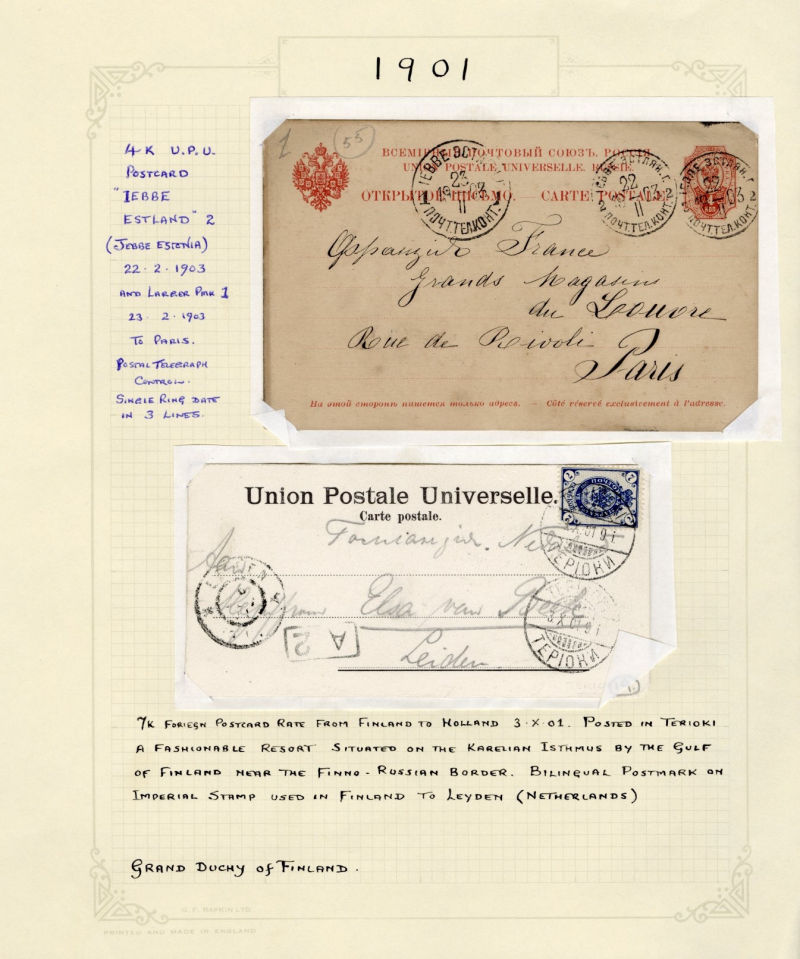 1901
4K U.P.U.
POSTCARD
"IEBBE
ESTLAND" 2
(JEBBE ESTONIA)
22 · 2 · 1903
AND LARGER PMK 1
23 · 2 · 1903
TO PARIS.
POSTAL TELEGRAPH
CONTROL.
SINGLE RING DATE
IN 3 LINES.
1
55
ВСЕМІРНЫЙ ПОЧТОВЫЙ СОЮЗЪ. РОССІЯ
UNION POSTALE UNIVERSELLE. RUSSIE
ОТКРЫТОЕ ПИСЬМО. CARTE POSTALE
ІЕВВЕ ЭСТ
23
1903
II
1 ПОЧТ.ТЕЛ.КОНТ.
ІЕВВЕ ЭСТЛЯН. Г.
22
1903 2
II
ПОЧТ.ТЕЛ.КОНТ.
ІЕВВЕ ЭСТЛЯН. Г.
22
03 2
II
ПОЧТ.ТЕЛ.КОНТ.
Франція France
Grands Magasins
du Louvre
Rue de Rivoli
Paris
На этой сторонѣ пишется только адресъ. — Côté réservé exclusivement à l'adresse.
Union Postale Universelle.
Carte postale.
3.X.01 9 i
ТЕРІОКИ
Elsa van
3.X.01 9 i
ТЕРІОКИ
LEIDEN
A 2
Leiden
7K FORIEGN POSTCARD RATE FROM FINLAND TO HOLLAND 3·X·01. POSTED IN TERIOKI
A FASHIONABLE RESORT SITUATED ON THE KARELIAN ISTHMUS BY THE GULF
OF FINLAND NEAR THE FINNO-RUSSIAN BORDER. BILINGUAL POSTMARK ON
IMPERIAL STAMP USED IN FINLAND TO LEYDEN (NETHERLANDS)
GRAND DUCHY of FINLAND.
G. F. RAPKIN LTD.
PRINTED AND MADE IN ENGLAND